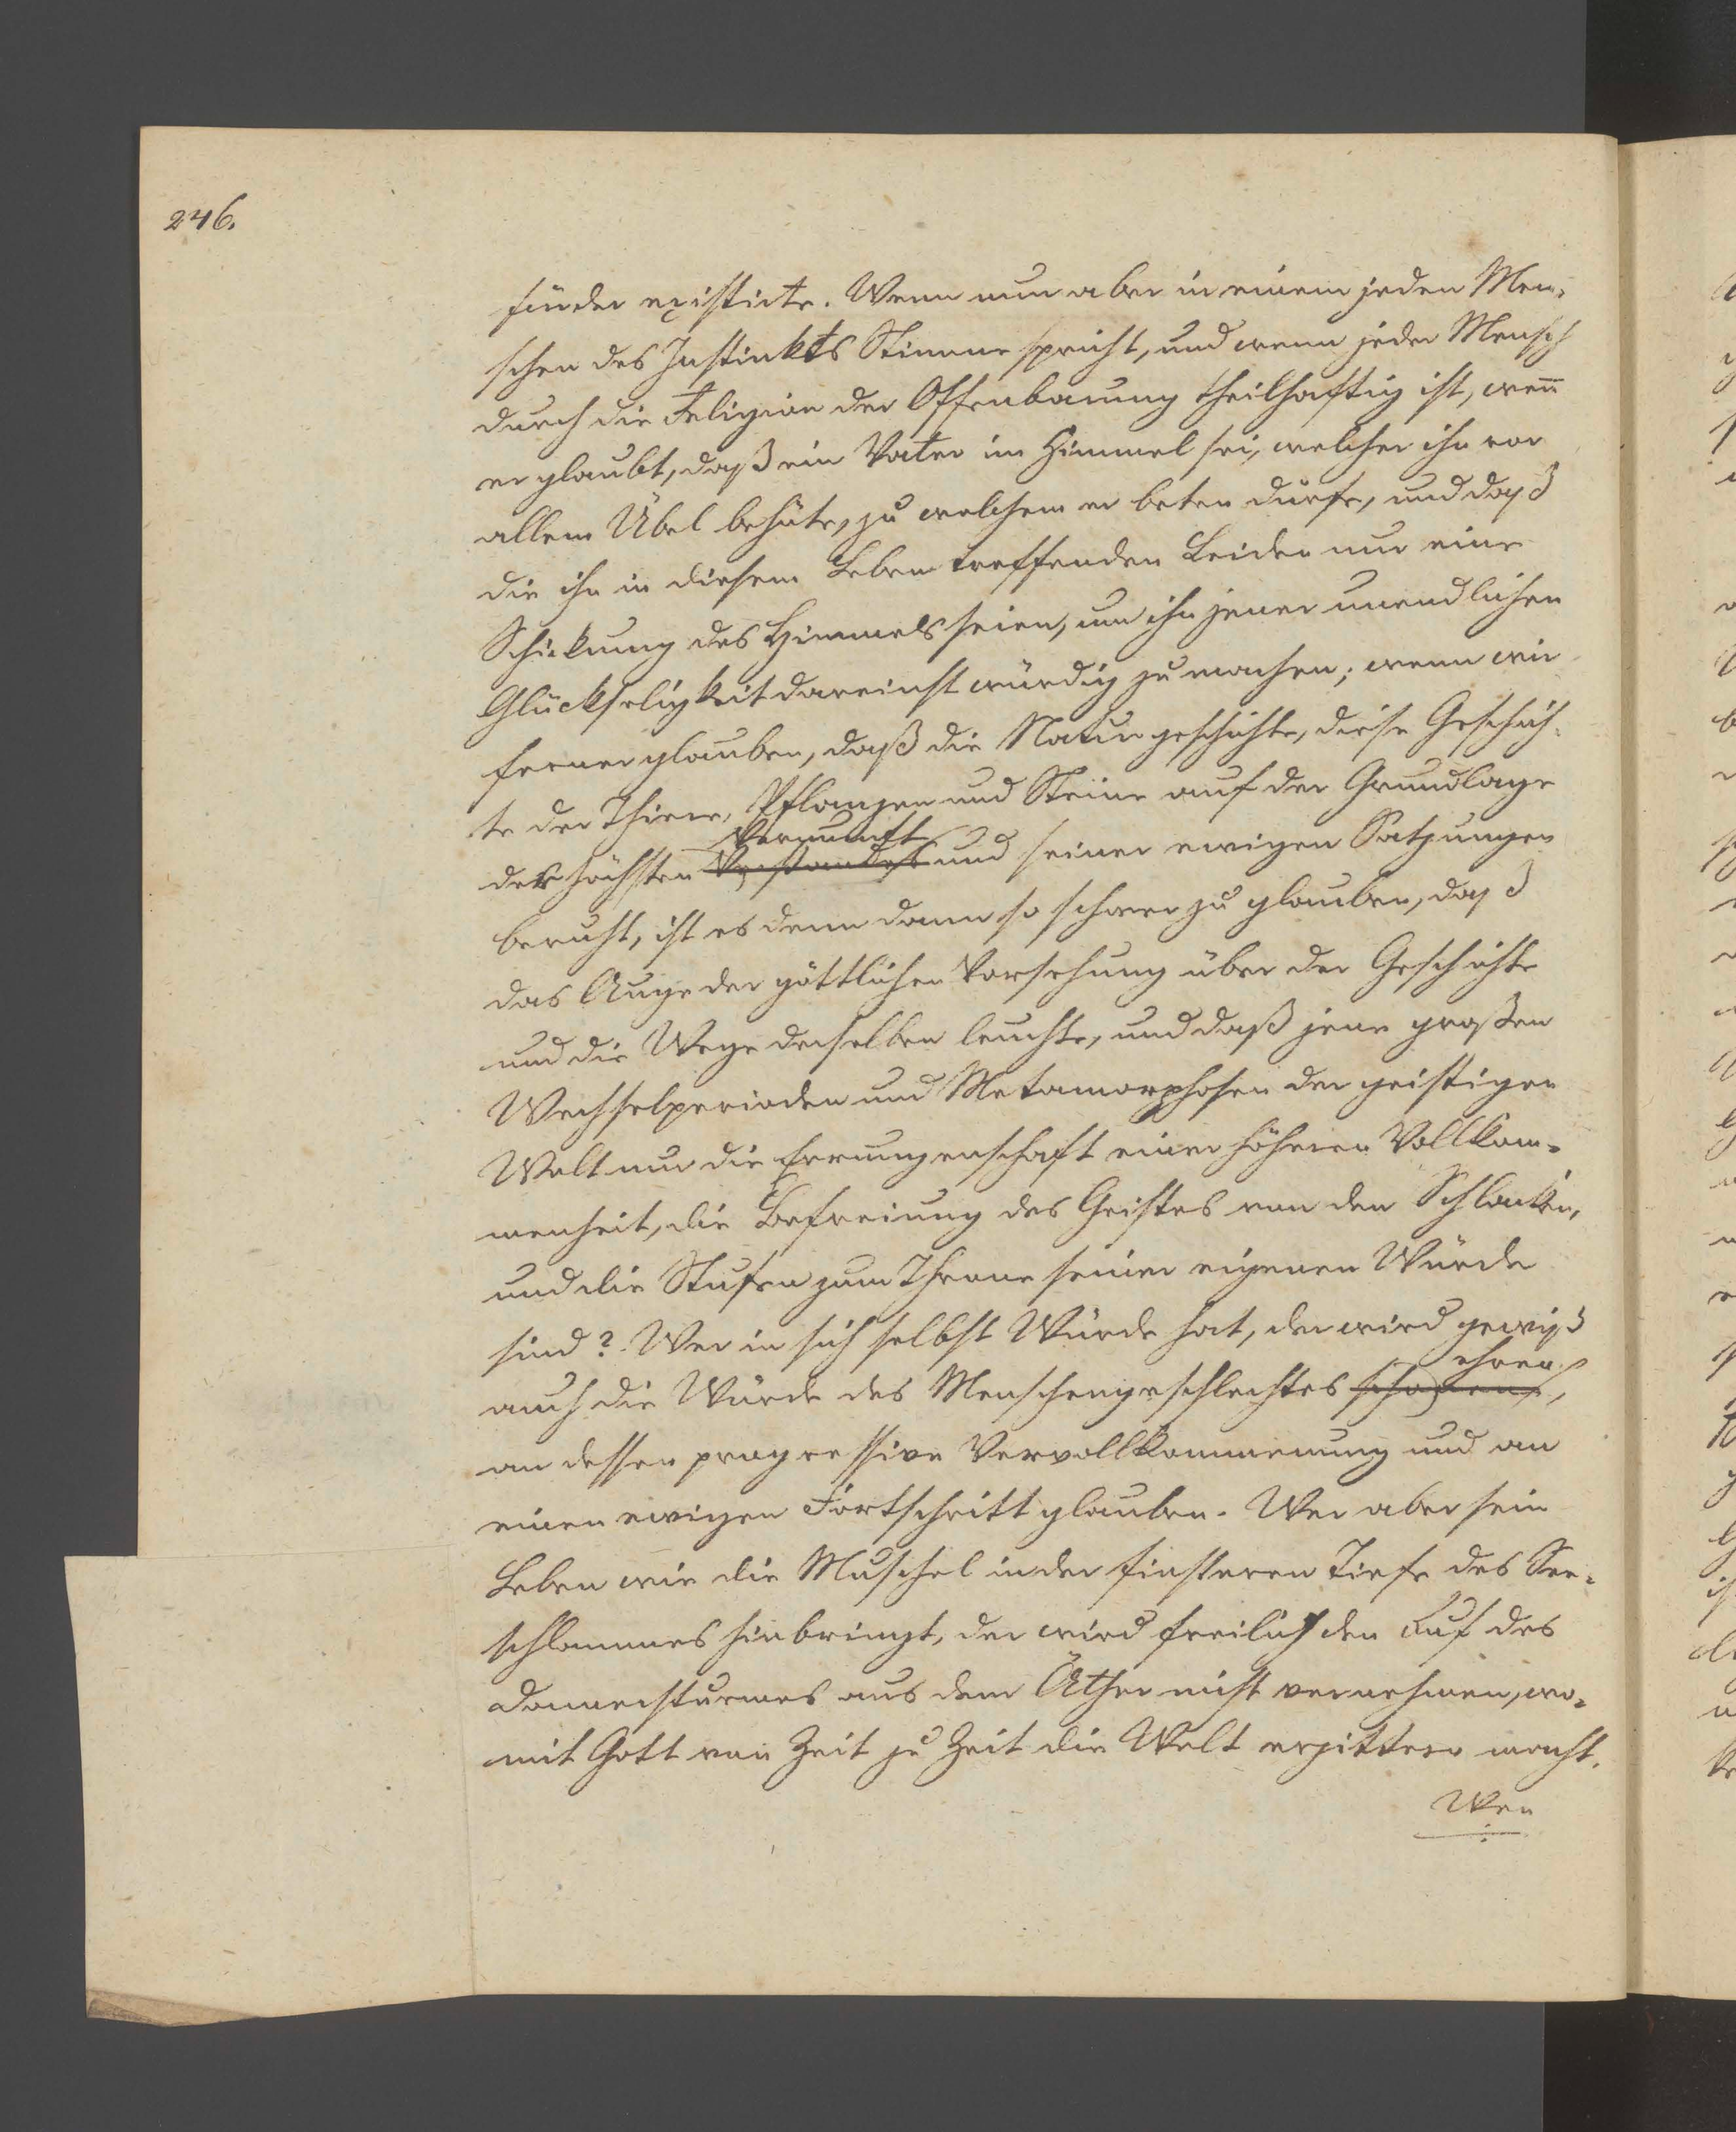 246.
finden existirte. Wenn nun aber in einem jeden Men-
schen des Instinkts Stimme spricht, und wenn jeder Mensch
durch die Religion der Offenbarung theilhaftig ist, wenn
er glaubt, daß ein Vater im Himmel sei, welcher ihn vor
allem Übel behüte, zu welchem er beten dürfe, und daß
die ihn in diesem Leben treffenden Leiden nur eine
Schickung des Himmels seien, um ihn jener unendlichen
Glückseligkeit dareinst würdig zu machen; wenn wir
ferner glauben, daß die Naturgeschichte, diese Geschich-
te der Thiere, Pflanzen und Steine auf der Grundlage
Vernunft
der höchsten Verstandes und seiner ewigen Satzungen
beruht, ist es denn dann so schwer zu glauben, daß
das Auge der göttlichen Vorsehung über der Geschichte
und die Wege derselben leuchte, und daß jene großen
Wechselperioden und Metamorphosen der geistigen
Welt nur die Errungenschaft einer höheren Vollkom-
menheit, die Befreiung des Geistes von den Schlacken,
und die Stufen zum Throne seiner eigenen Würde
sind? Wer in sich selbst Würde hat, der wird gewiß
ehren
auch die Würde des Menschengeschlechtes
an dessen progressive Vervollkommnung und an
einen ewigen Fortschritt glauben. Wer aber sein
Leben wie die Muschel in der finsteren Tiefe des See-
schlammes hinbringt, der wird freilich den Ruf des
Donnersturmes aus dem Äther nicht vernehmen, wo-
mit Gott von Zeit zu Zeit die Welt erzittern macht.
Wer